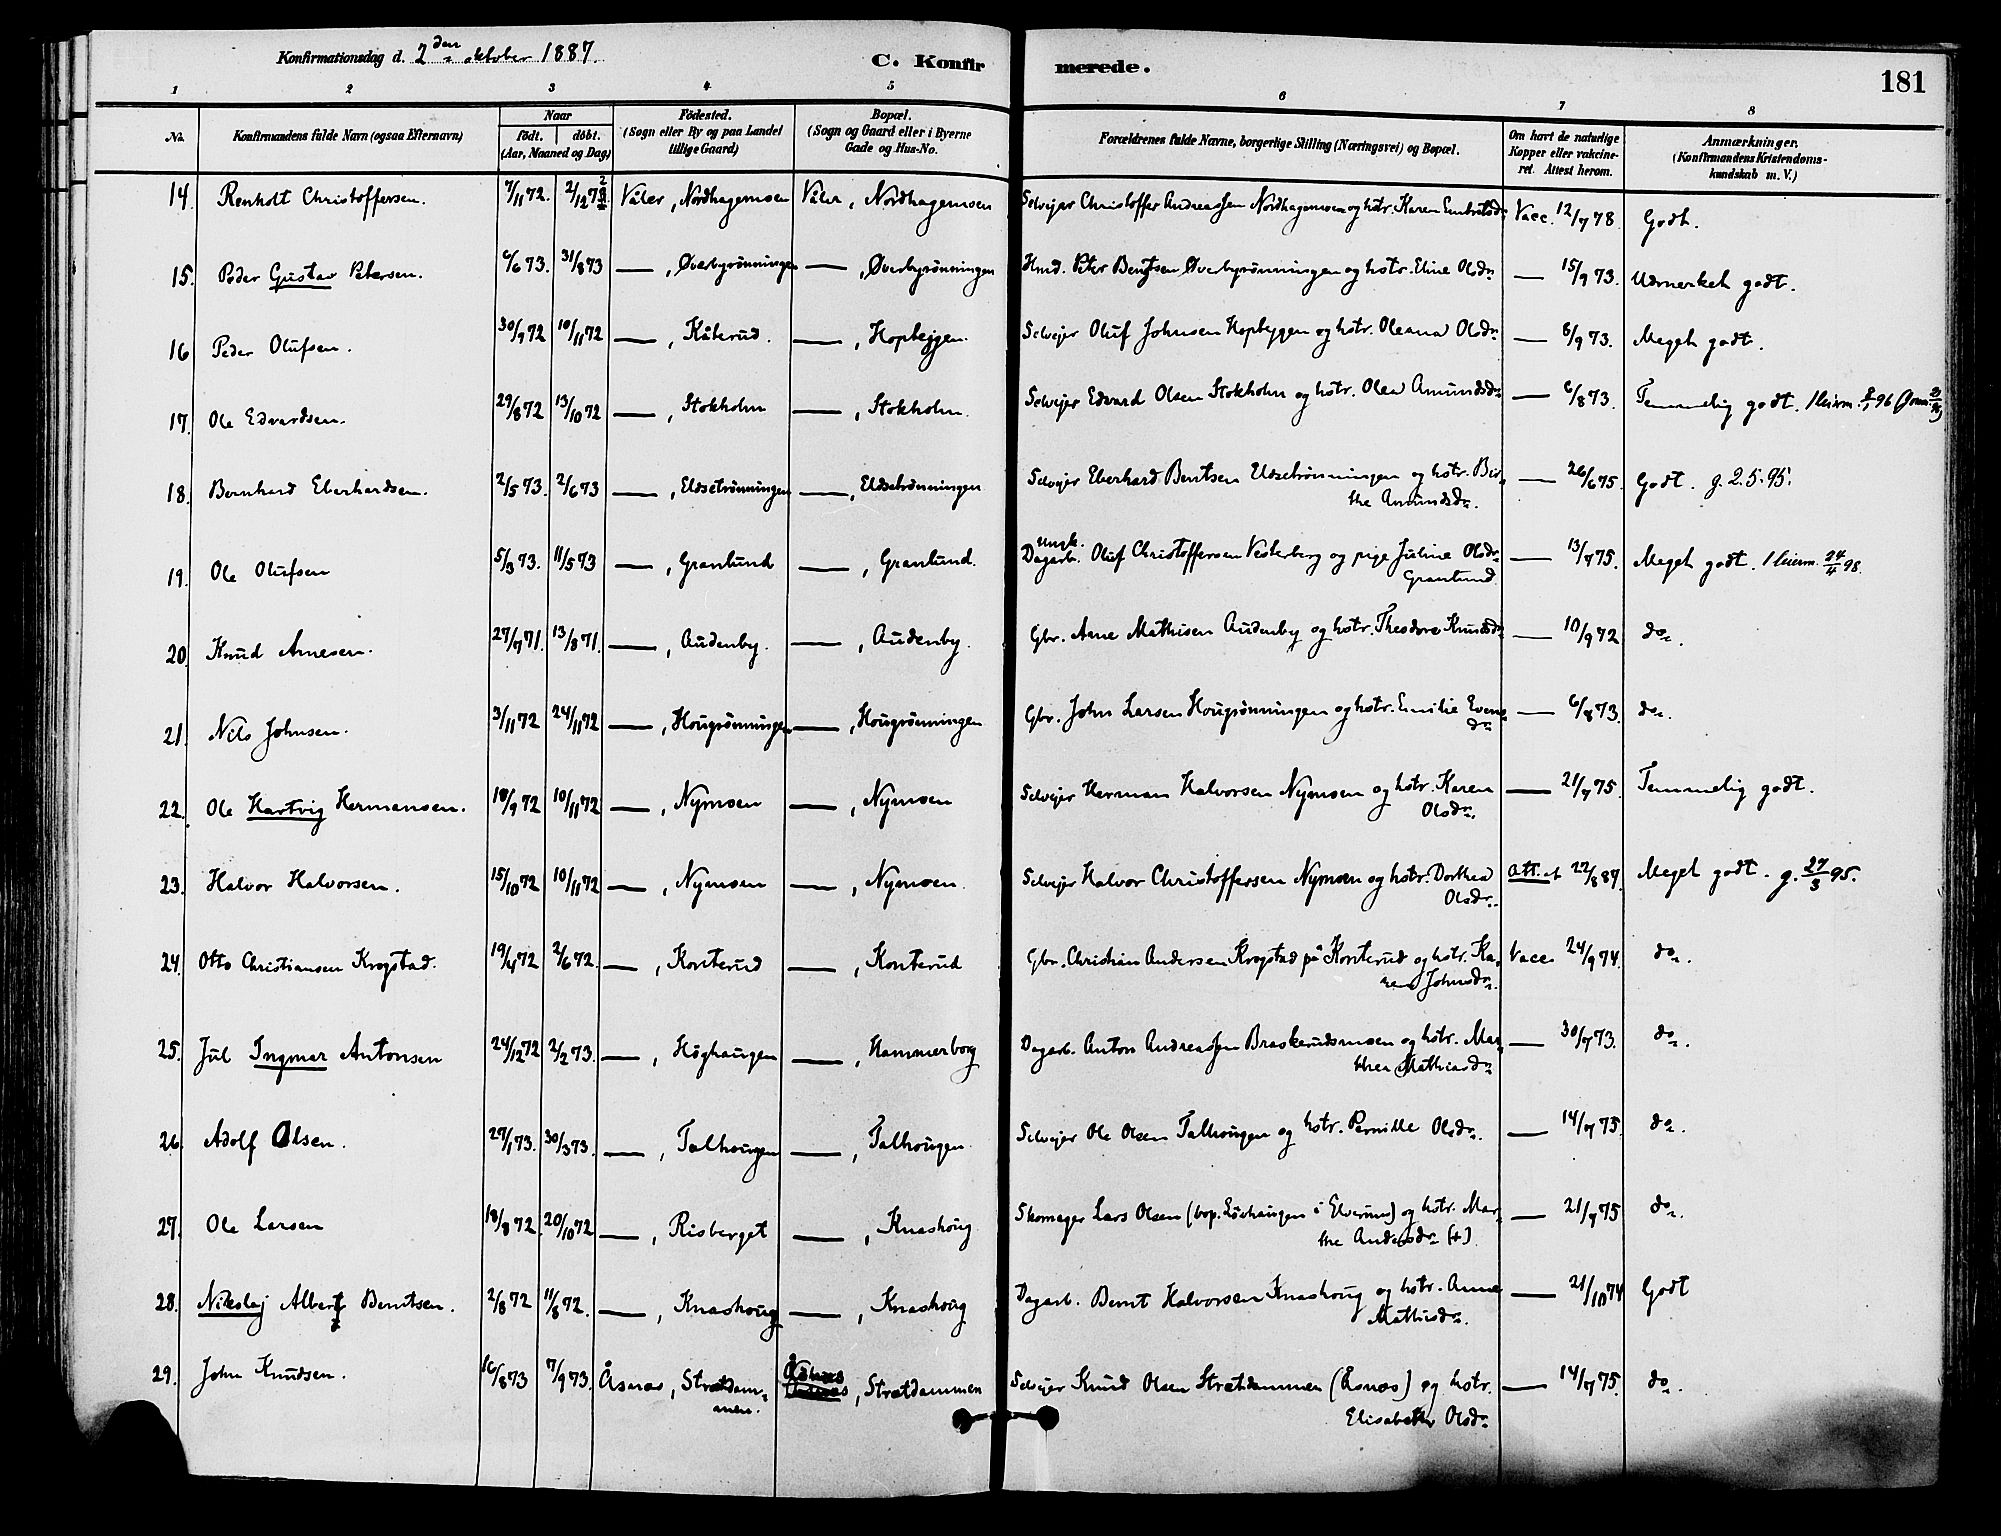 Konfirmationsdag d. 2den oktober 1887.
C. Konfirmerede.
181
1 2 3 4 5 6 7 8
No. Konfirmandens fulde Navn (ogsaa Efternavn) Naar født. døbt. (Aar, Maaned og Dag) Fødested. (Sogn eller By og paa Landet tillige Gaard) Bopæl. (Sogn og Gaard eller i Byerne Gade og Hus-No. Forældrenes fulde Navne, borgerlige Stilling (Næringsvei) og Bopæl. Om havt de naturlige Kopper eller vakcineret. Attest herom. Anmærkninger. (Konfirmandens Kristendomskundskab m. V.)
14. Renholt Christoffersen. 7/11 72. 2/12 72 Våler, Nordhagemoen Våler, Nordhagemoen Selvejer Christoffer Andreassen Nordhagemoen og hstr. Karen Embretsdr. Vacc. 12/7 78 Godt.
15. Peder Gustav Petersen. 6/6 73. 31/8 73 —, Øverbyrønningen —, Øverbyrønningen Hmd. Peter Bentsen Øverbyrønningen og hstr. Eline Olsdr. — 15/9 73. Udmerket godt.
16 Peder Olufsen. 30/9 72 10/11 72 —, Kåterud. —, Hopbyggen. Selvejer Oluf Johnsen Hopbyggen og hstr. Oleana Olsdr. — 8/9 73. Meget godt.
17. Ole Edvardsen. 29/8 72 13/10 72 —, Stokholm —, Stokholm. Selvejer Edvard Olsen Stokholm og hstr. Olea Amundsdr. — 6/8 73. Temmelig godt. 1 leierm. 96
18. Bernhard Eberhardsen. 2/5 73. 2/6 73 —, Eldsetrønningen —, Eldsetrønningen Selvejer Eberhard Bentsen Eldsetrønningen og hstr. Bir-
the Amundsdr. — 26/6 75. Godt. g. 2.5.95.
19. Ole Olufsen 5/3 73. 11/5 73 —, Granlund —, Granlund. Ungk. Dagarb. Oluf Christoffersen Vesterberg og pige Juline Olsdr.
Granlund. — 13/7 75. Meget godt. 1 leierm. 24/4 98.
20. Knud Arnesen. 27/7 71. 13/8 71. —, Audenby. —, Audenby. Gbr. Arne Mathisen Audenby og hstr. Theodora Knudsdr. — 10/9 72 do.
21. Nils Johnsen. 3/11 72 24/11 72 —, Hougrønningen —, Hougrønningen Gbr. John Larsen Hougrønningen og hstr. Emilie Evens-
dr. — 6/8 73. do.
22. Ole Hartvig Hermansen. 18/9 72 10/11 72 —, Nymoen —, Nymoen Selvejer Herman Halvorsen Nymoen og hstr. Karen
Olsdr. — 21/7 75. Temmelig godt.
23. Halvor Halvorsen. 15/10 72 10/11 72 —, Nymoen —, Nymoen. Selvejer Halvor Christoffersen Nymoen og hstr. Dorthea
Olsdr. Att. af 22/8 87. Meget godt. g. 27/3 95.
24. Otto Christiansen Krogstad. 19/4 72 2/6 72. —, Konterud —, Konterud Gbr. Christian Andersen Krogstad på Konterud og hstr. Ka-
ren Johnsdr. Vacc. 24/9 74. do.
25. Jul Ingmar Antonsen 24/12 72 2/2 73. —, Høghaugen —, Hammerborg Dagarb. Anton Andreassen Braskerudsmoen og hstr. Mar-
thea Mathiasdr. — 30/7 73. do.
26. Adolf Olsen. 27/1 73. 30/3 73. —, Talhougen —, Talhougen. Selvejer Ole Olsen Talhougen og hstr. Pernille Olsdr. — 14/7 75. do.
27. Ole Larsen 18/8 72. 20/10 72 —, Risberget —, Knashoug Skomager Lars Olsen (bop. Løvhaugen i Elverum) og hstr. Mar-
the Andersdr. (+). — 21/7 75 do.
28. Nikolaj Albert Berntsen. 2/8 72 11/8 72. —, Knashoug —, Knashoug Dagarb. Bernt Halvorsen Knashoug og hstr. Anne
Mathisdr. — 21/10 74 Godt
29. John Knudsen. 16/8 73 7/9 73. Åsnes, Strætdam-
men. Åsnes, Strætdammen Selvejer Knud Olsen Strætdammen (Åsnes) og hstr.
Elisabeth Olsdr. — 14/7 75. do.